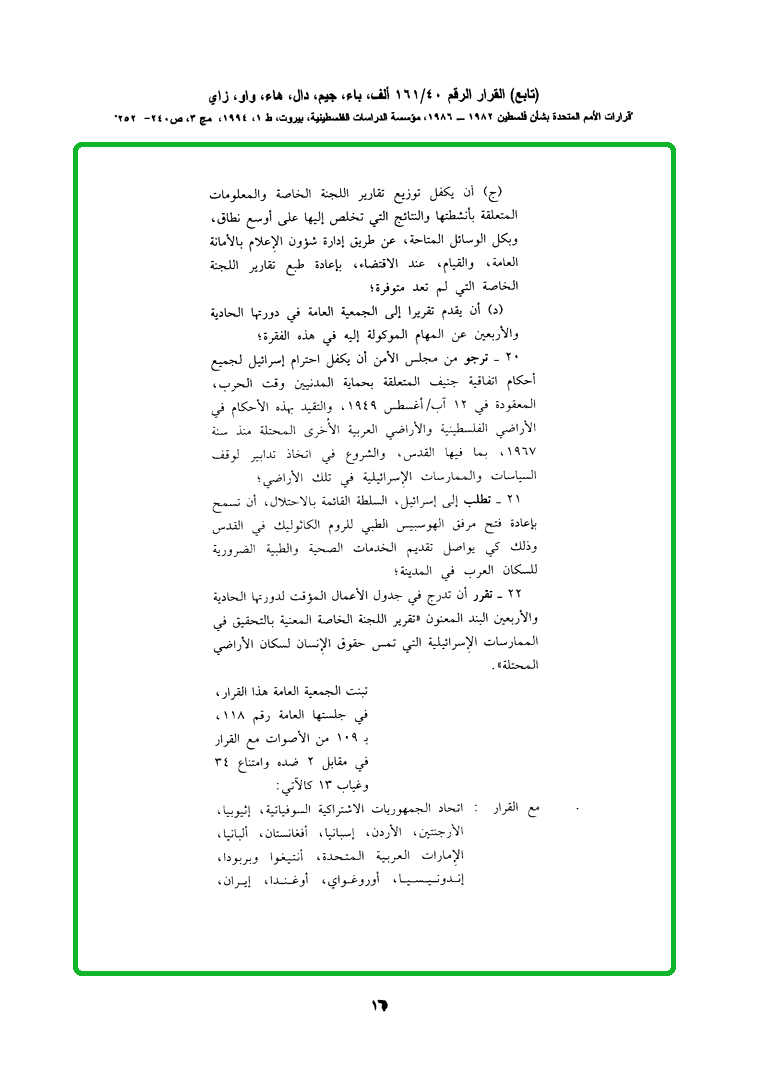 (تابع) القرار الرقم ١٦١/٤٠ ألف، باء، جيم، دال، هاء، واو، زاي
"قرارات الأمم المتحدة بشأن فلسطين ١٩٨٢ – ١٩٨٦، مؤسسة الدراسات الفلسطينية، بيروت، ط ١، ١٩٩٤، مج ٣، ص٢٤٠- ٢٥٢"
(ج) أن يكفل توزيع تقارير اللجنة الخاصة والمعلومات
المتعلقة بأنشطتها والنتائج التي تخلص إليها على أوسع نطاق،
وبكل الوسائل المتاحة، عن طريق إدارة شؤون الإعلام بالأمانة
العامة، والقيام، عند الاقتضاء، بإعادة طبع تقارير اللجنة
الخاصة التي لم تعد متوفرة؛
(د) أن يقدم تقريرا إلى الجمعية العامة في دورتها الحادية
والأربعين عن المهام الموكولة إليه في هذه الفقرة؛
٢٠ ـ ترجو من مجلس الأمن أن يكفل احترام إسرائيل لجميع
أحكام اتفاقية جنيف المتعلقة بحماية المدنيين وقت الحرب،
المعقودة في ١٢ آب/أغسطس ١٩٤٩، والتقيد بهذه الأحكام في
الأراضي الفلسطينية والأراضي العربية الأُخرى المحتلة منذ سنة
١٩٦٧، بما فيها القدس، والشروع في اتخاذ تدابير لوقف
السياسات والممارسات الإسرائيلية في تلك الأراضي؛
٢١ ـ تطلب إلى إسرائيل، السلطة القائمة بالاحتلال، أن تسمح
بإعادة فتح مرفق الهوسبيس الطبي للروم الكاثوليك في القدس
وذلك كي يواصل تقديم الخدمات الصحية والطبية الضرورية
للسكان العرب في المدينة؛
٢٢ ـ تقرر أن تدرج في جدول الأعمال المؤقت لدورتها الحادية
والأربعين البند المعنون «تقرير اللجنة الخاصة المعنية بالتحقيق في
الممارسات الإسرائيلية التي تمس حقوق الإنسان لسكان الأراضي
المحتلة».
تبنت الجمعية العامة هذا القرار،
في جلستها العامة رقم ١١٨،
بـ ١٠٩ من الأصوات مع القرار
في مقابل ٢ ضده وامتناع ٣٤
وغياب ١٣ كالآتي:
مع القرار : اتحاد الجمهوريات الاشتراكية السوفياتية، إثيوبيا،
الأرجنتين، الأردن، إسبانيا، أفغانستان، ألبانيا،
الإمارات العربية المتحدة، أنتيغوا وبربودا،
إندونيسيا، أوروغواي، أوغندا، إيران،
١٦